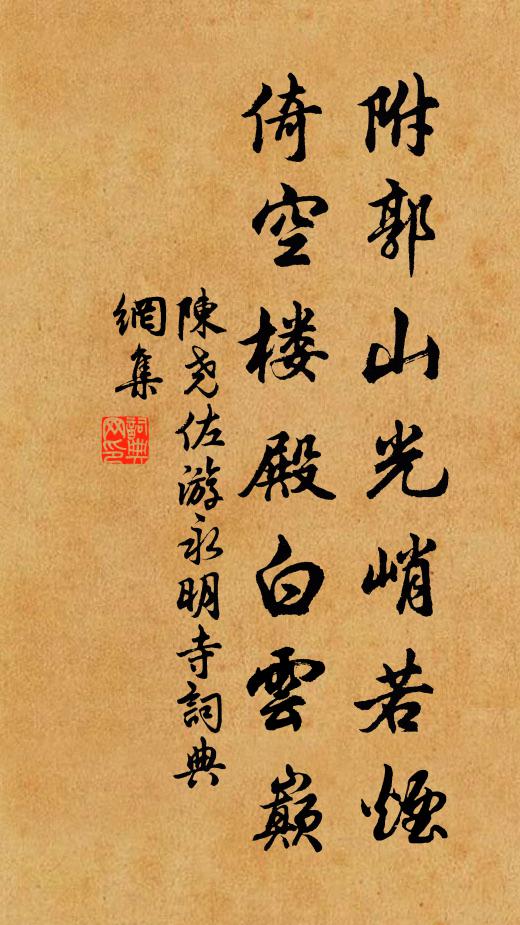 附郭山光峭若煙
倚空楼殿白雲巔
陳尧佐游永明寺詞典
網集
詞典
网印